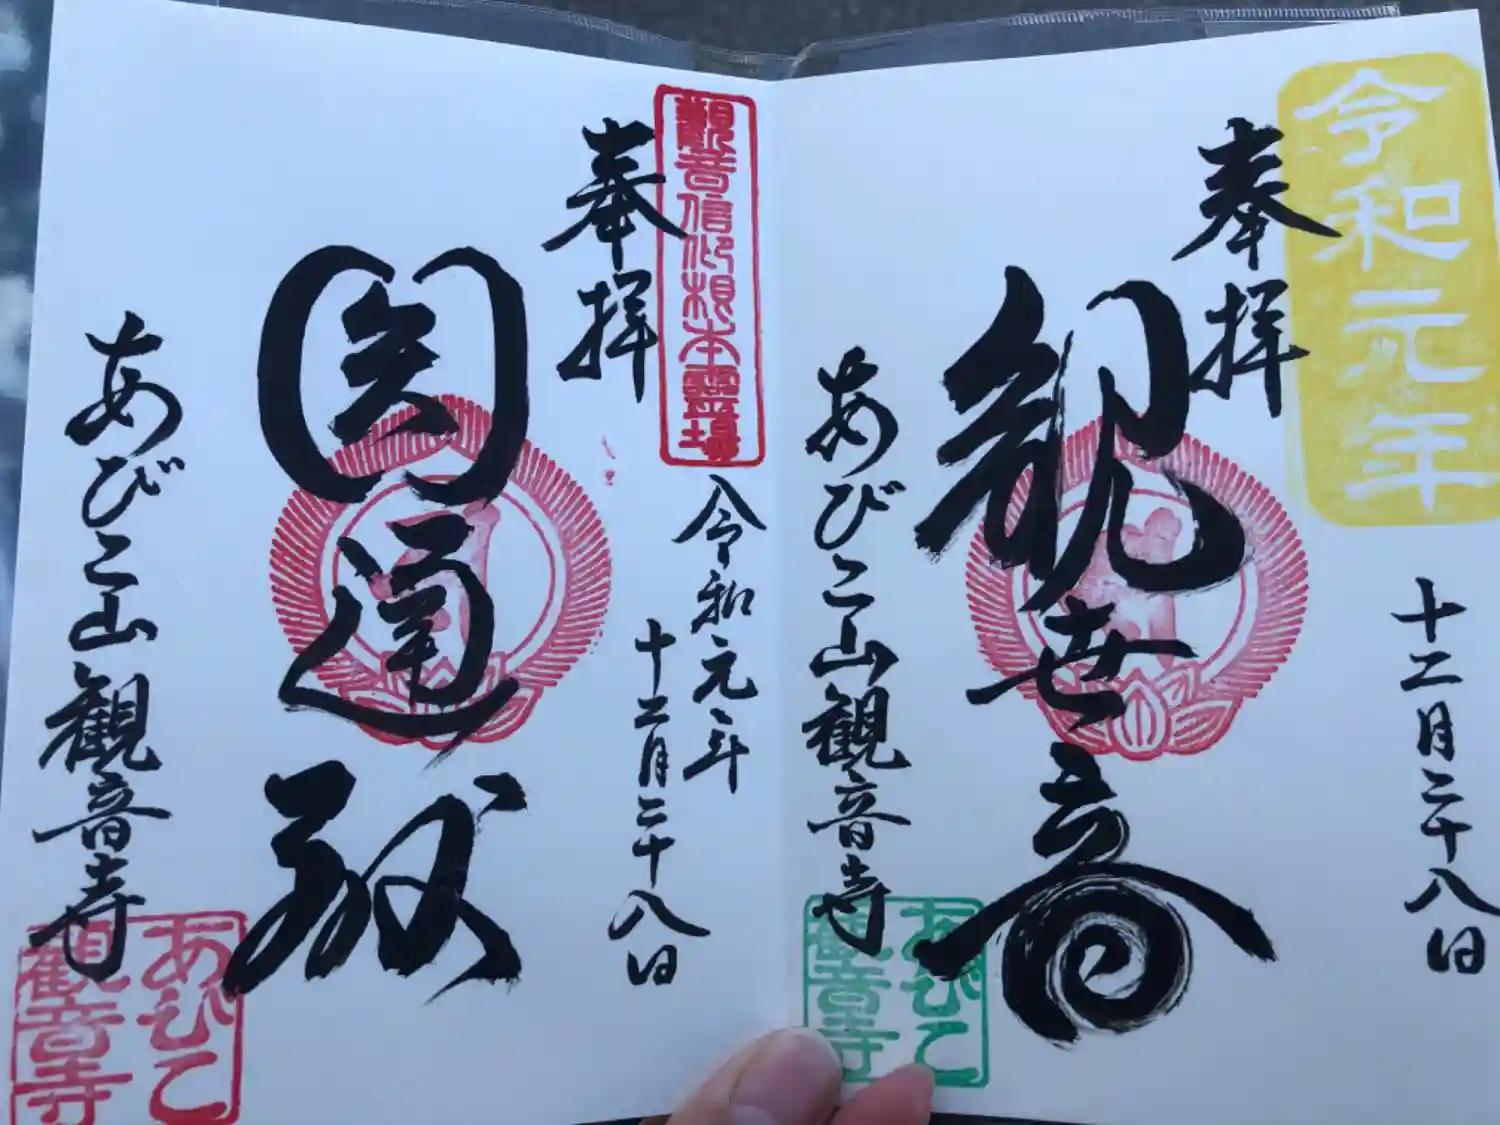 令和元年
奉拝
十二月二十八日
観世音
あびこ山観音寺
あびこ
観音寺
観音信仰根本霊場
奉拝
令和元年
十二月二十八日
圓通殿
あびこ山観音寺
あびこ
観音寺